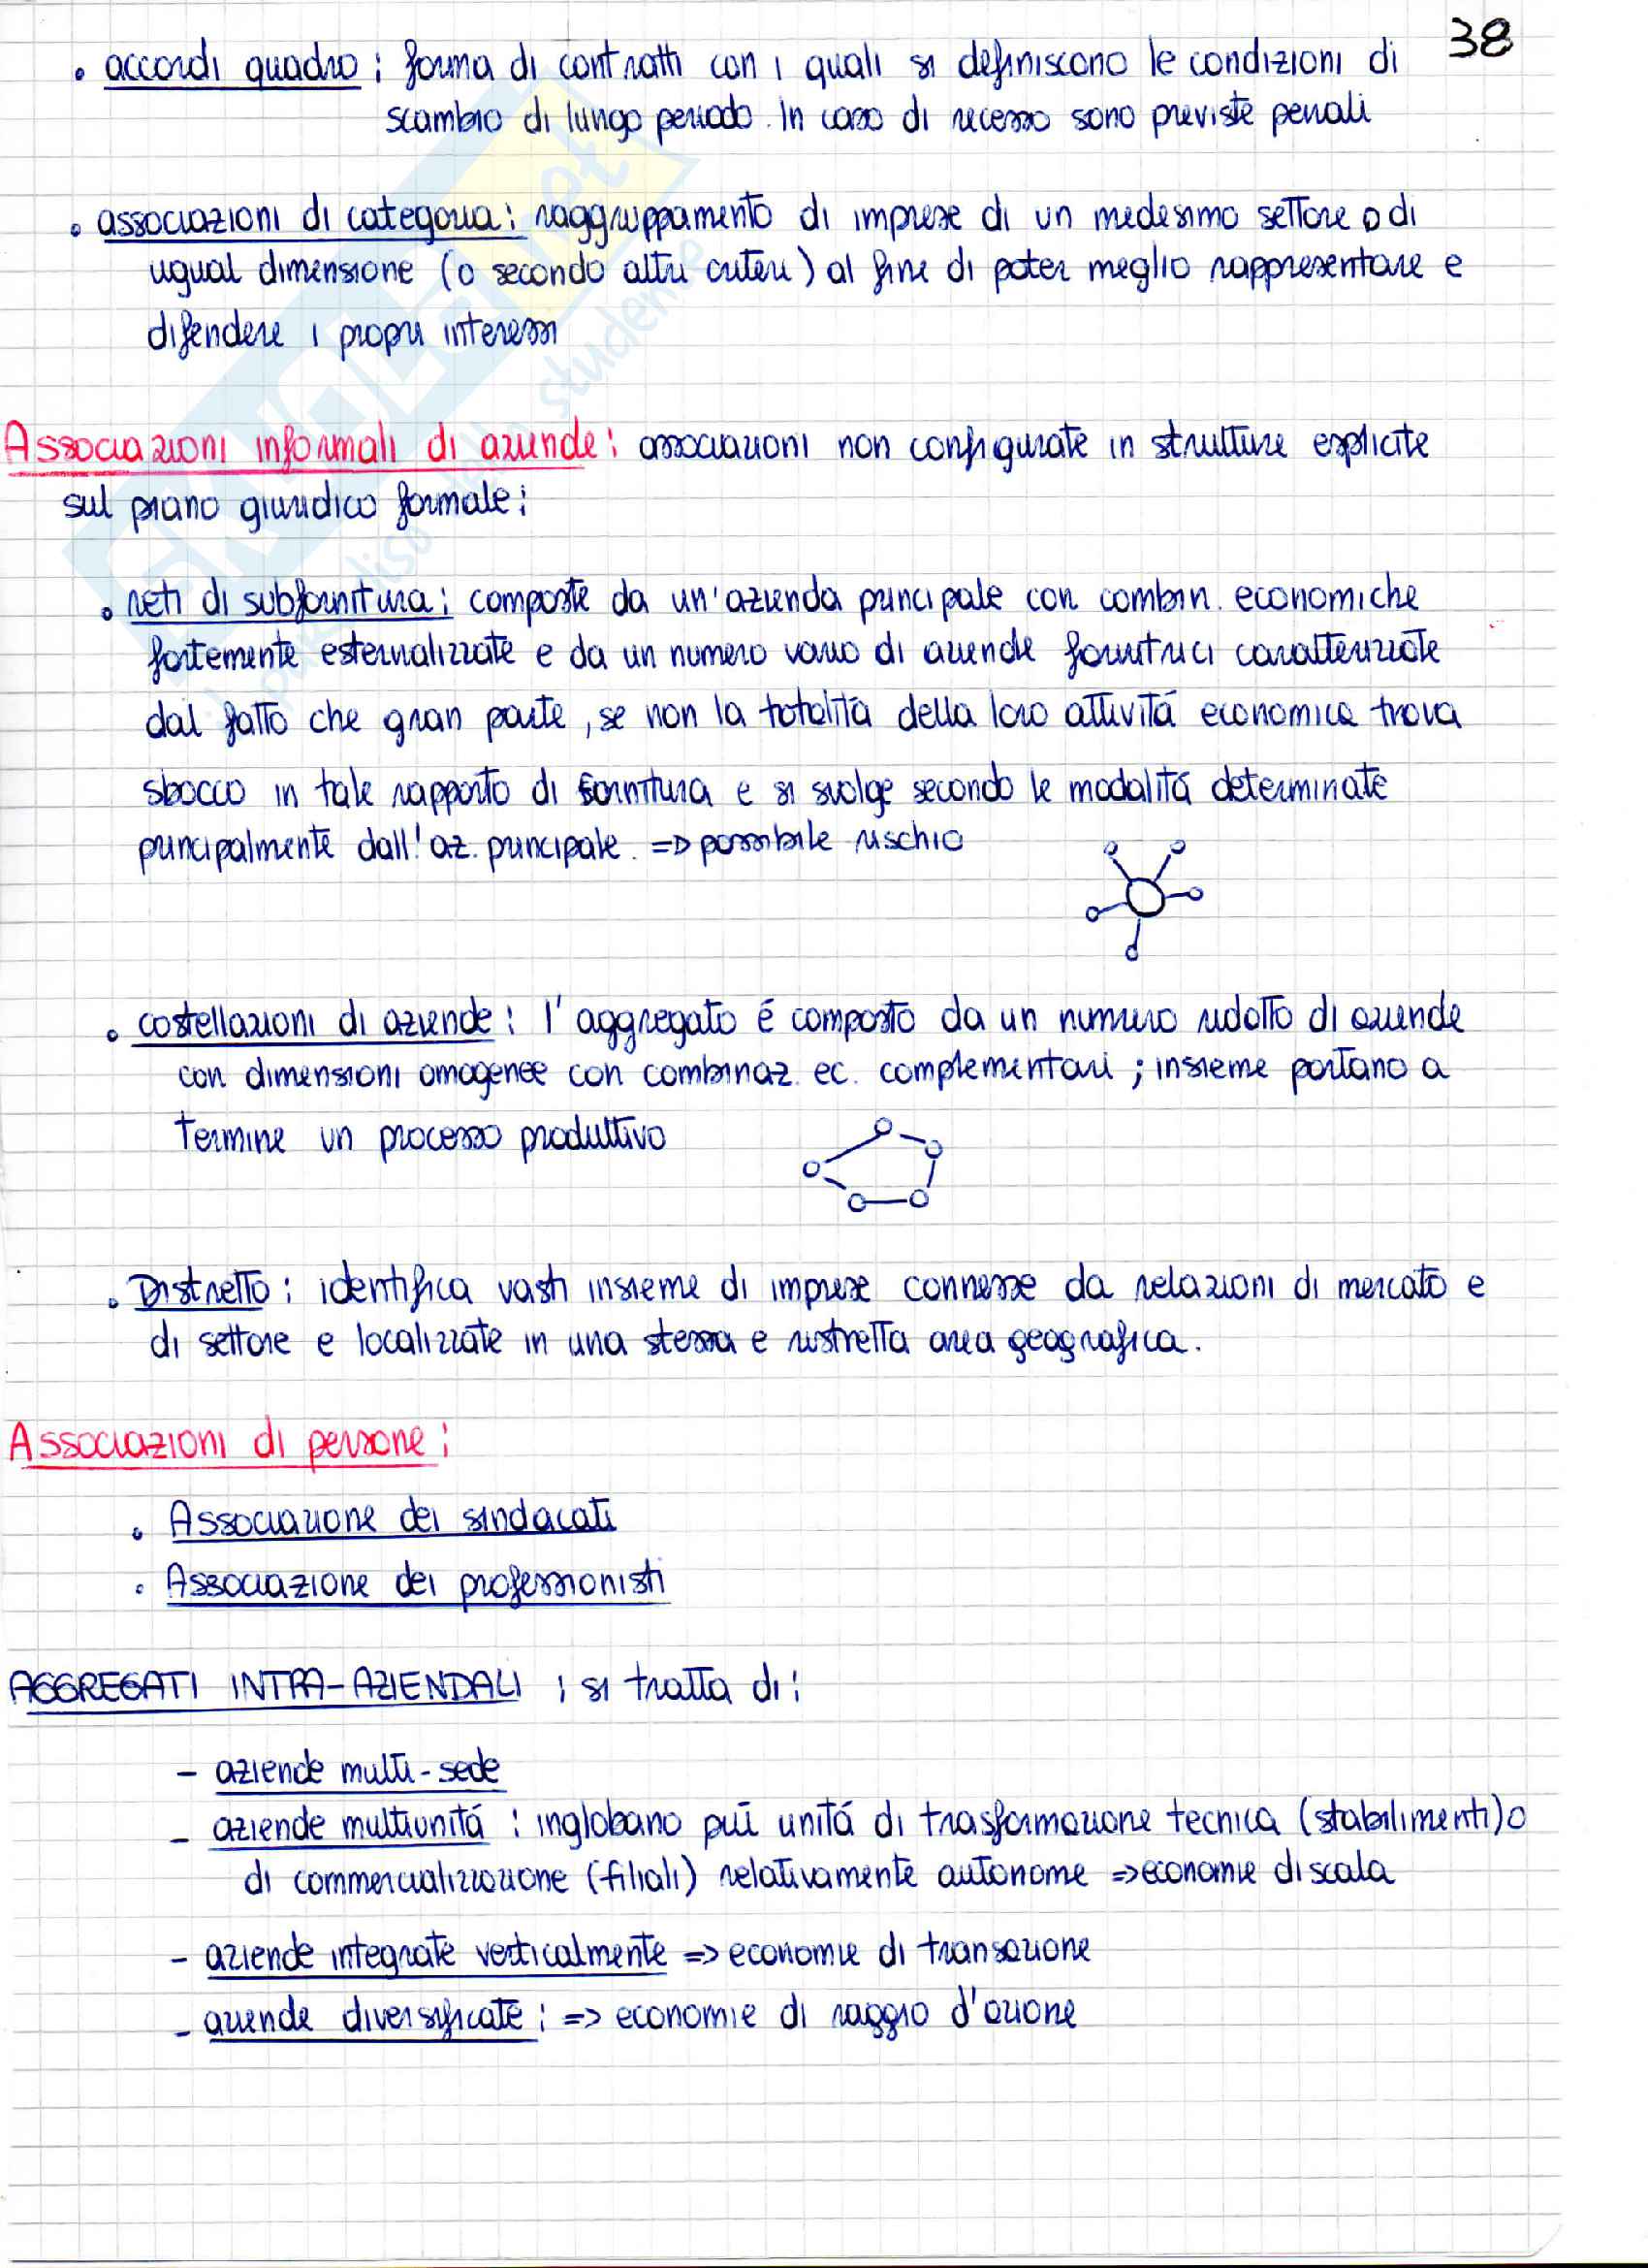 38
• accordi quadro : forma di contratti con i quali si definiscono le condizioni di
scambio di lungo periodo. In caso di recesso sono previste penali
• associazioni di categoria : raggruppamento di imprese di un medesimo settore o di
ugual dimensione (o secondo altri criteri) al fine di poter meglio rappresentare e
difendere i propri interessi
Associazioni informali di aziende : associazioni non configurate in strutture esplicite
sul piano giuridico formale :
• reti di subfornitura : composte da un'azienda principale con combin. economiche
fortemente esternalizzate e da un numero vario di aziende fornitrici caratterizzate
dal fatto che gran parte, se non la totalitá della loro attivitá economica trova
sbocco in tale rapporto di fornitura e si svolge secondo le modalitá determinate
principalmente dall'az. principale. => possibile rischio
• costellazioni di aziende : l'aggregato é composto da un numero ridotto di aziende
con dimensioni omogenee con combinaz. ec. complementari ; insieme portano a
termine un processo produttivo
• Distretto : identifica vasti insieme di imprese connesse da relazioni di mercato e
di settore e localizzate in una stessa e ristretta area geografica.
Associazioni di persone :
• Associazione dei sindacati
• Associazione dei professionisti
AGGREGATI INTRA-AZIENDALI : si tratta di :
- aziende multi-sede
- aziende multiunitá : inglobano piú unitá di trasformazione tecnica (stabilimenti) o
di commercializzazione (filiali) relativamente autonome => economie di scala
- aziende integrate verticalmente => economie di transazione
- aziende diversificate : => economie di raggio d'azione